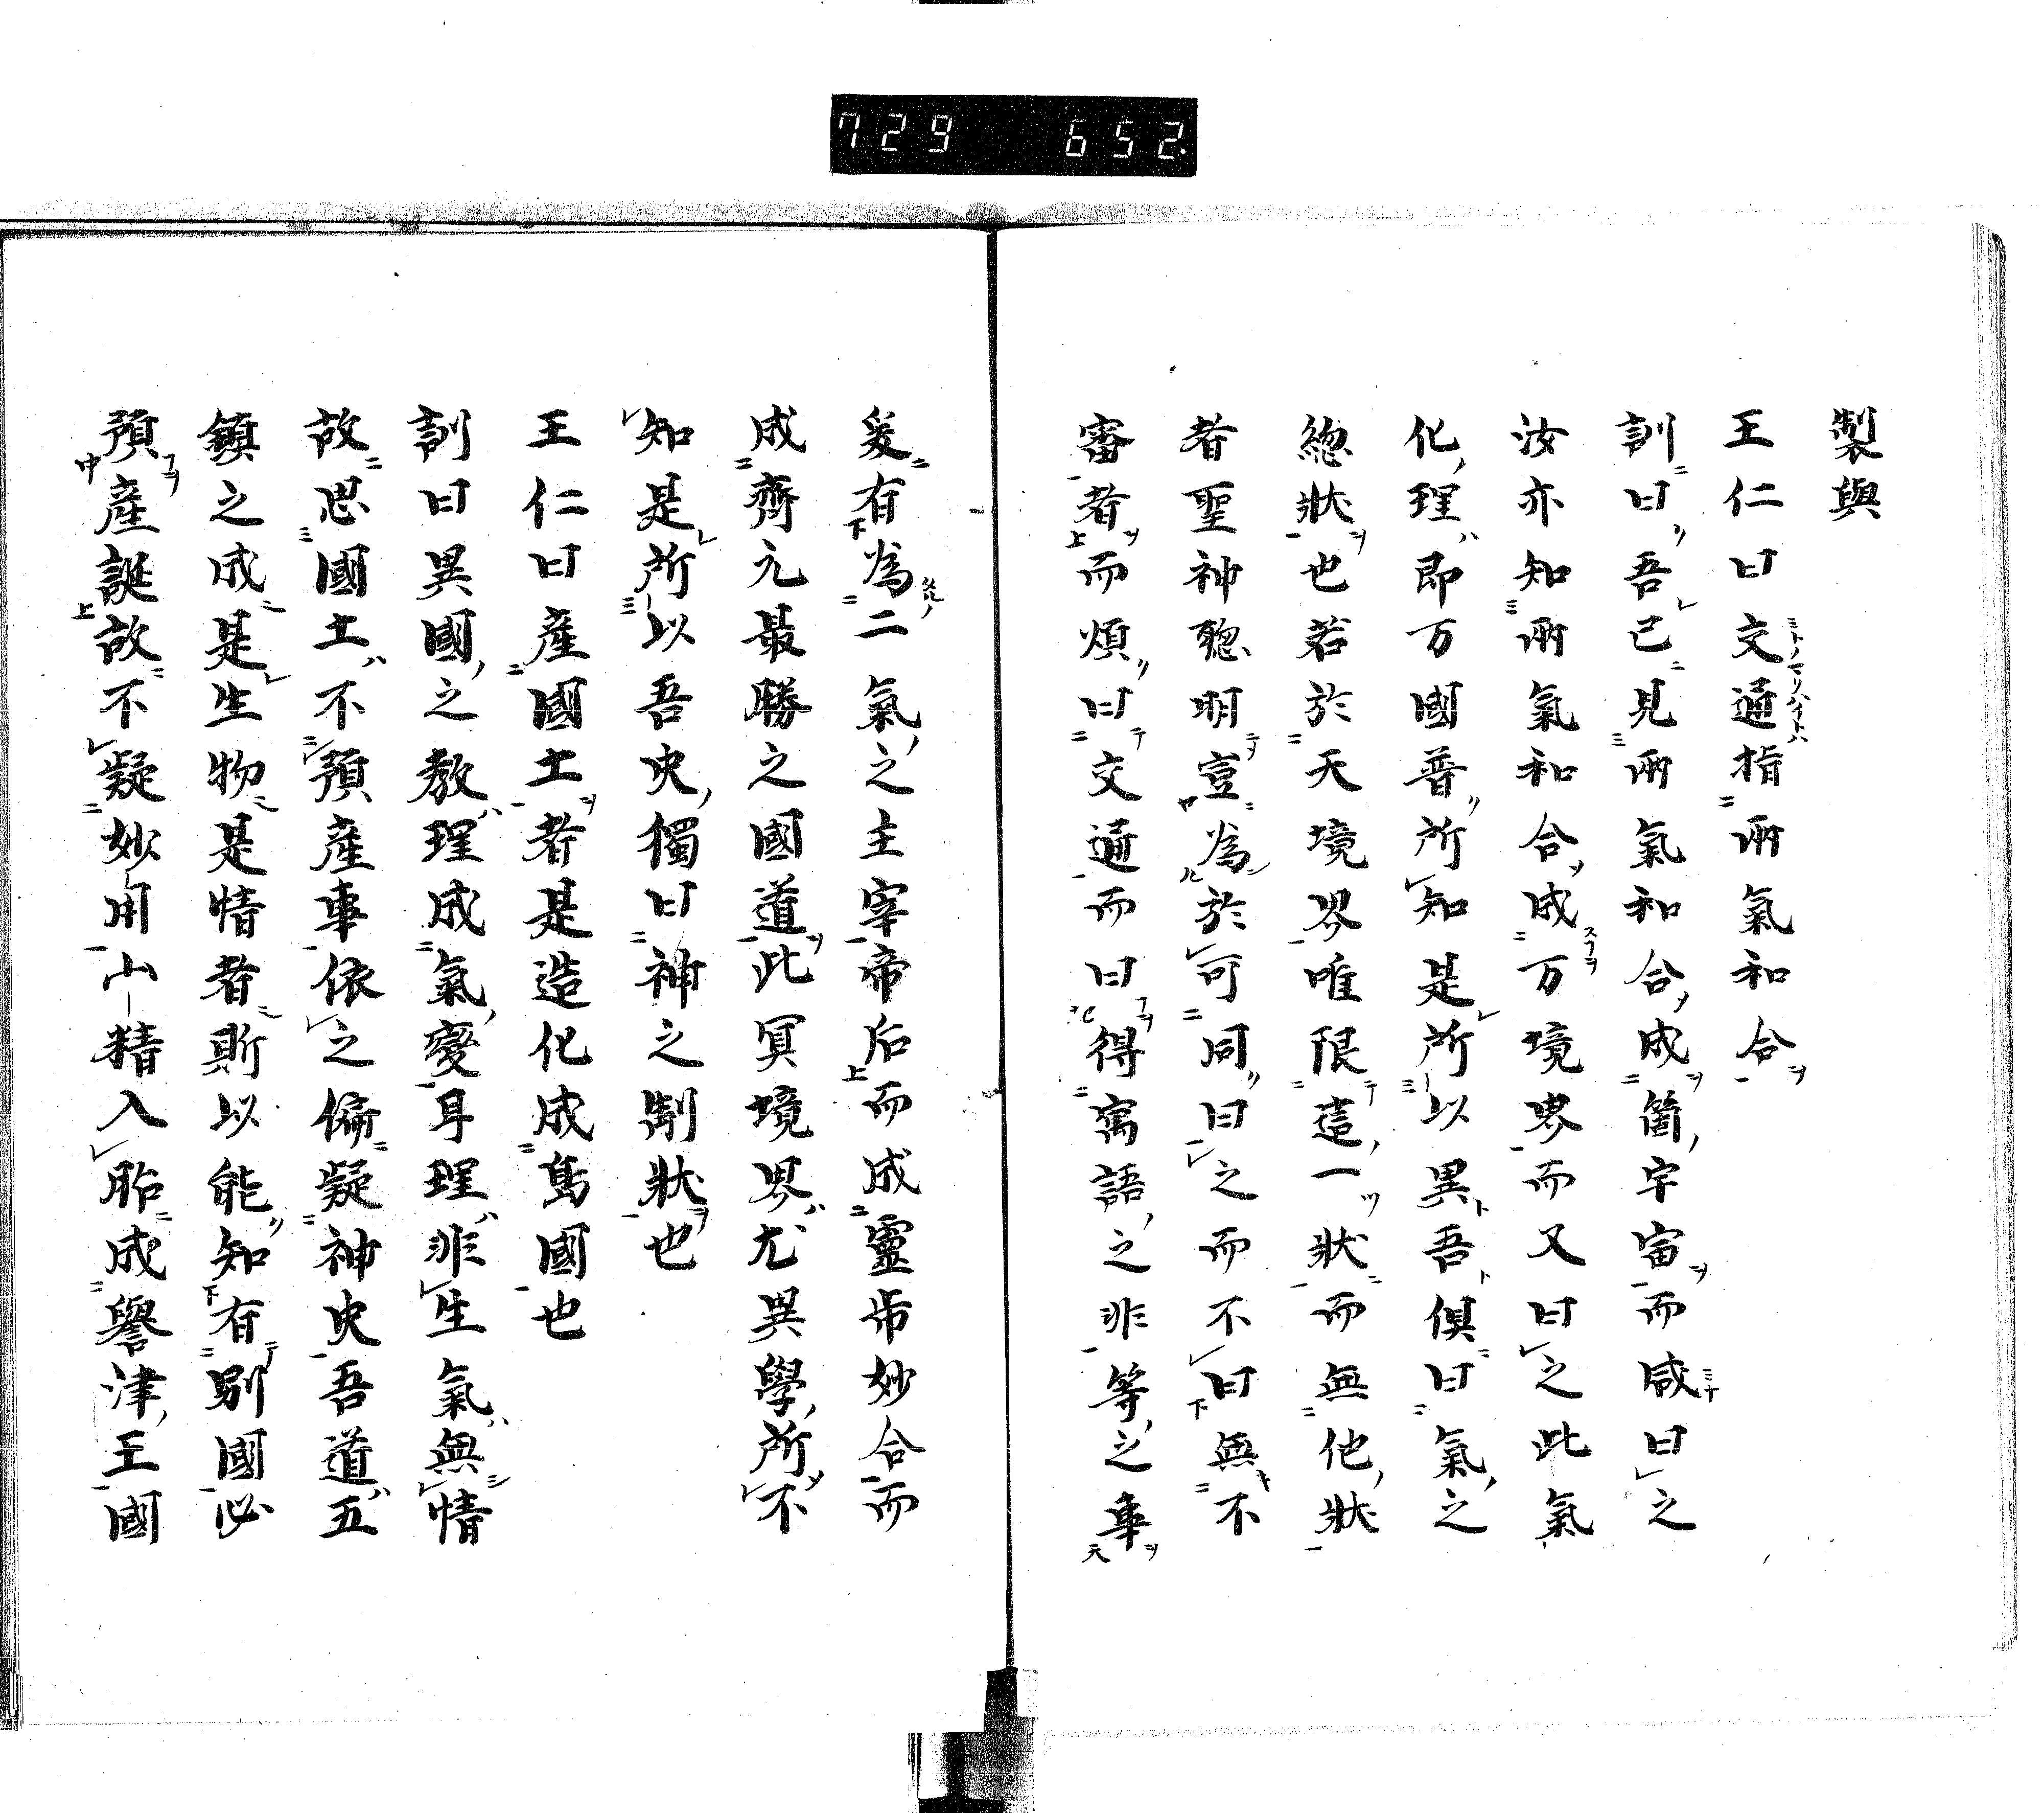 729 652.
製與
王仁曰文通指兩氣和合
訓曰吾已見兩氣和合成箇宇宙而咸曰之
汝亦知兩氣和合成万境界而又曰之此氣
化理即万國普所知是所以異吾俱曰氣之
總狀也若於天境界唯限這一狀而無他狀
者聖神聰明豈為於可同曰之而不曰無不
審者而煩曰文通而曰得寓語之非等之事
爰有為二氣之主宰帝后而成靈妙合而
成齊元最勝之國道此冥境界尤異學所不
知是所以吾史獨曰神之制狀也
王仁曰産國土者是造化成島國也
訓曰異國之教理成氣變耳理非生氣無情
故思國土不預産事依之偏疑神史吾道五
鎮之成是生物是情者斯以能知有別國必
預産誕故不疑妙用山精入胎成譽津王國